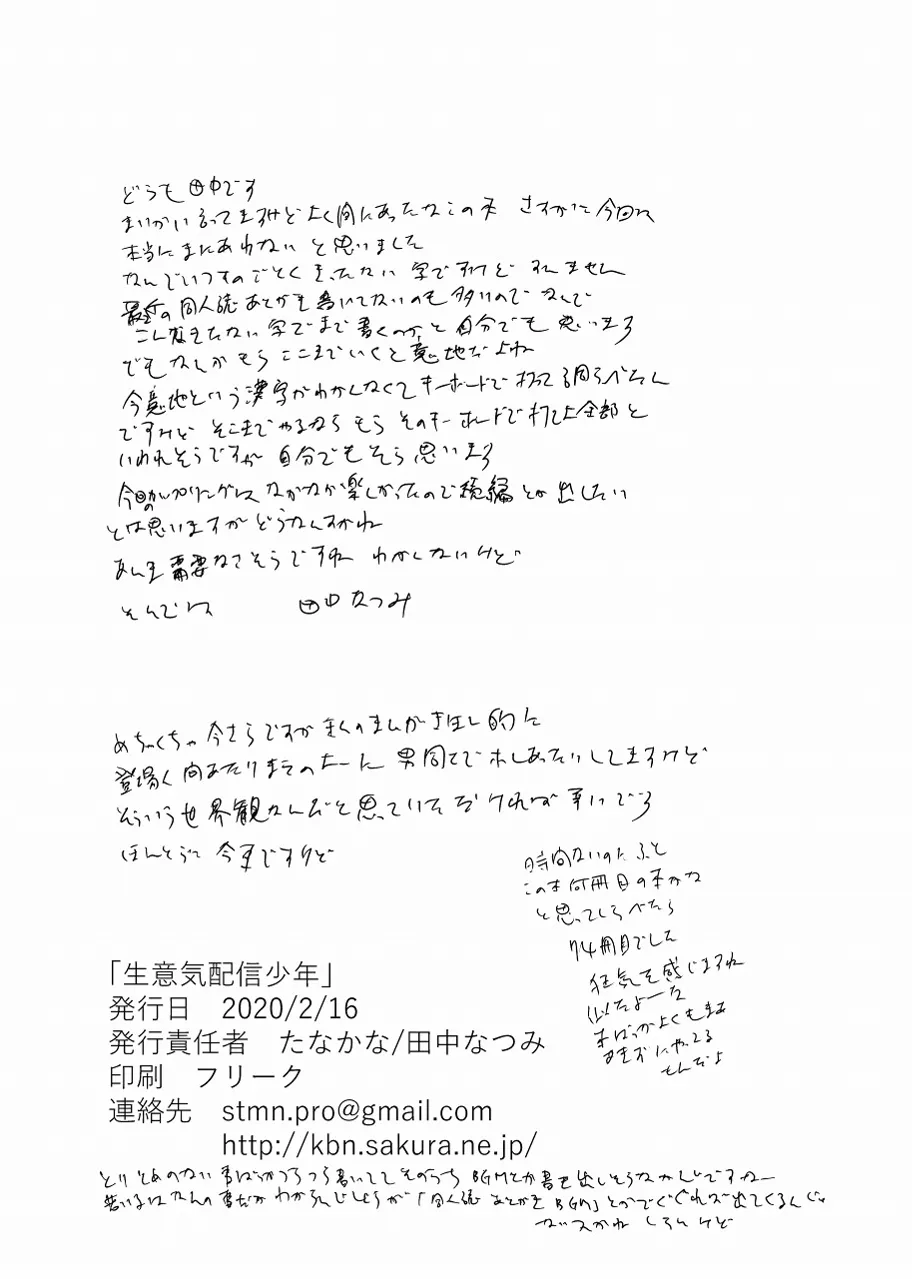 どうも田中です
まいかい言ってますけどよく間にあったなこの本 さすがに今回は
本当にまにあわないと思いました
なんでいつものごとくきったない字ですけどすいません
最近の同人誌あとがき書いてないのも多いのでなんで
こんなきたない字でまで書くのかと自分でも思います
でもなんかもうここまでいくと意地だよね
今意地という漢字がわかんなくてキーボードで打って調べたん
ですけどそこまでやるならもうそのキーボードで打て上全部と
いわれそうですが自分でもそう思います
今回のカップリングはなかなか楽しかったので続編とか出したい
とは思いますがどうなんすかね
あんま需要なさそうですね わかんないけど
そんでは 田中なつみ
めちゃくちゃ今さらですがぼくのまんが
登場 男同士で してますけど
そういう世界観なんだと思っていただければ幸いです
ほんとうに今更ですけど
時間ないのにふと
この本何冊目の本かな
と思ってしらべたら
74冊目でした
狂気を感じますね
似たよーな
本ばっかよくもまあ
あきずにやってる
もんだよ
「生意気配信少年」
発行日 2020/2/16
発行責任者 たなかな/田中なつみ
印刷 フリーク
連絡先 stmn.pro@gmail.com
http://kbn.sakura.ne.jp/
とりとめのない事ばっかつらつら書いててそのうちBGMとか書き出しそうなかんじですねー
若い子はなんの事だかわからんでしょうが「同人誌 あとがき BGM」とかでぐぐれば出てくるんじゃ
ないすかね しらんけど